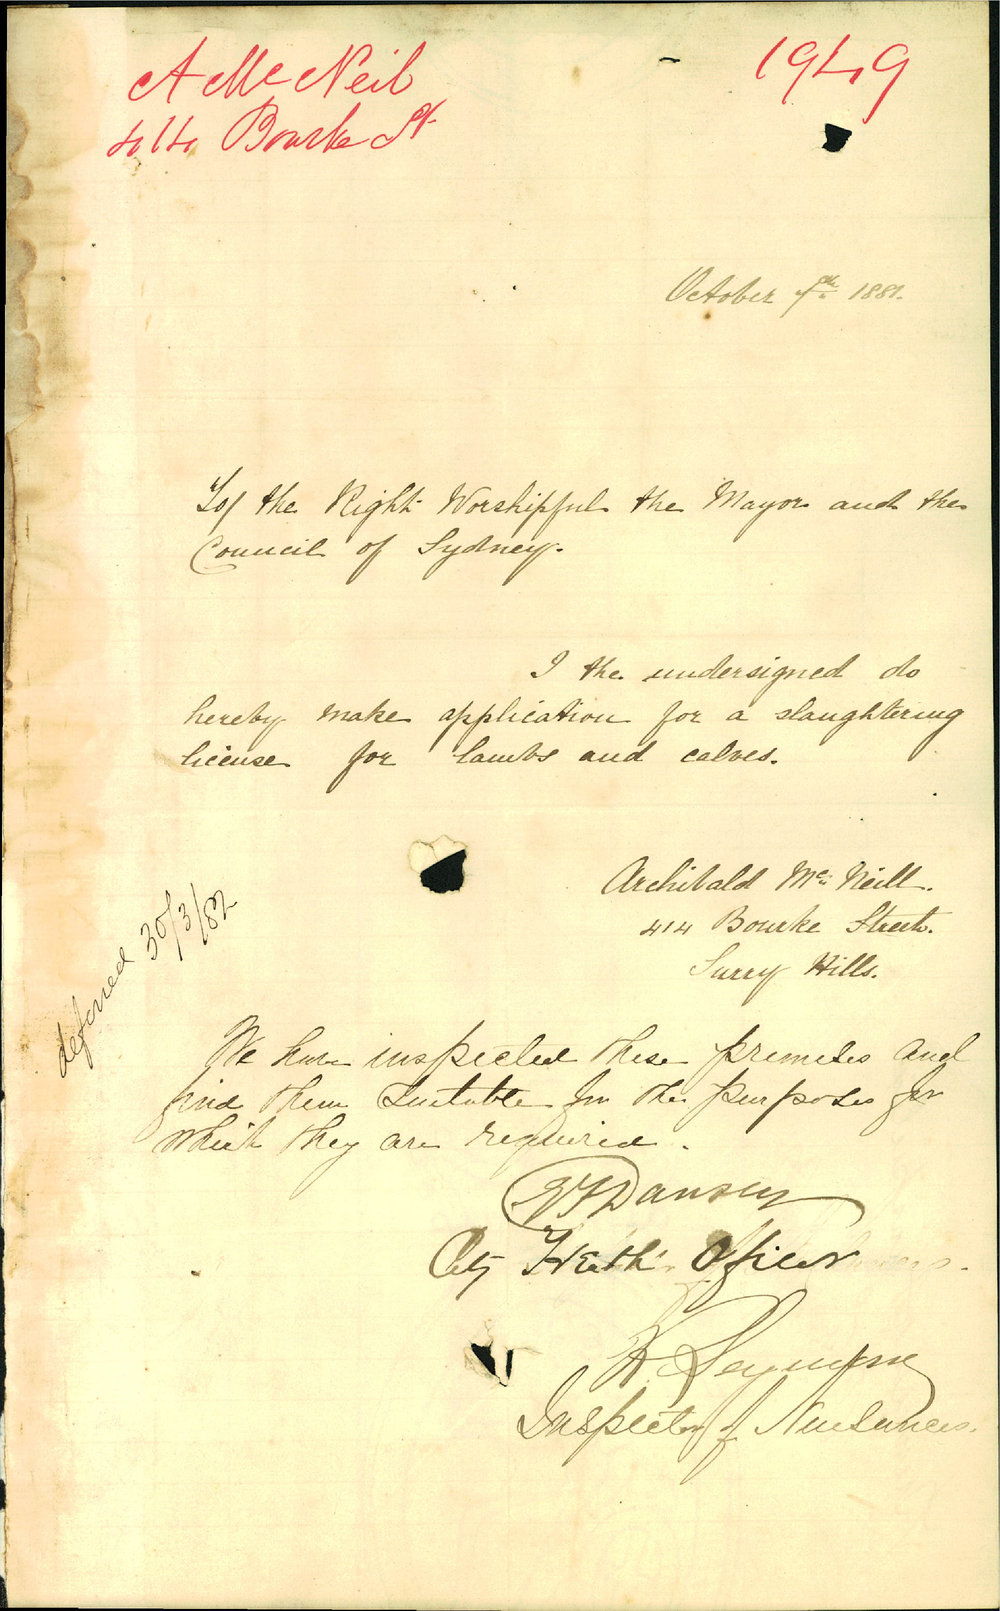 A McNeil
414 Bourke St
1949
October 7th 1881.
To/ the Right Worshipful the Mayor and the
Council of Sydney.
I the undersigned do
hereby make application for a slaughtering
license for lambs and calves.
Archibald Mc Neill.
414 Bourke Street.
Surry Hills.
deferred 30/3/82
We have inspected these premises and
find them suitable for the purposes for
which they are required.
GFDansey
City Health Officer
R. Seymour
Inspector of Nuisances.